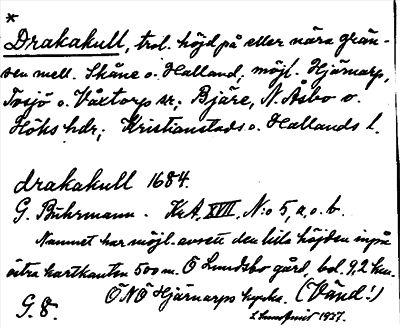 *
Drakakull, trol. höjd på eller nära grän-
sen mell. Skåne o. Halland; möjl. Hjärnarp,
Tosjö o. Våxtorp sr; Bjäre, N. Åsbo o.
Höks hdr; Kristianstads o. Hallands l.
drakakull 1684.
G. Buhrmann. KrA, XVII, N:o 5, a, o. b.
Namnet har möjl. avsett den lilla höjden inpå
östra kartkanten 500 m. Ö Lundsbo gård, bol. 9,2 km.
ÖNÖ Hjärnarps kyrka. (Vänd!)
G. 8. 1927.